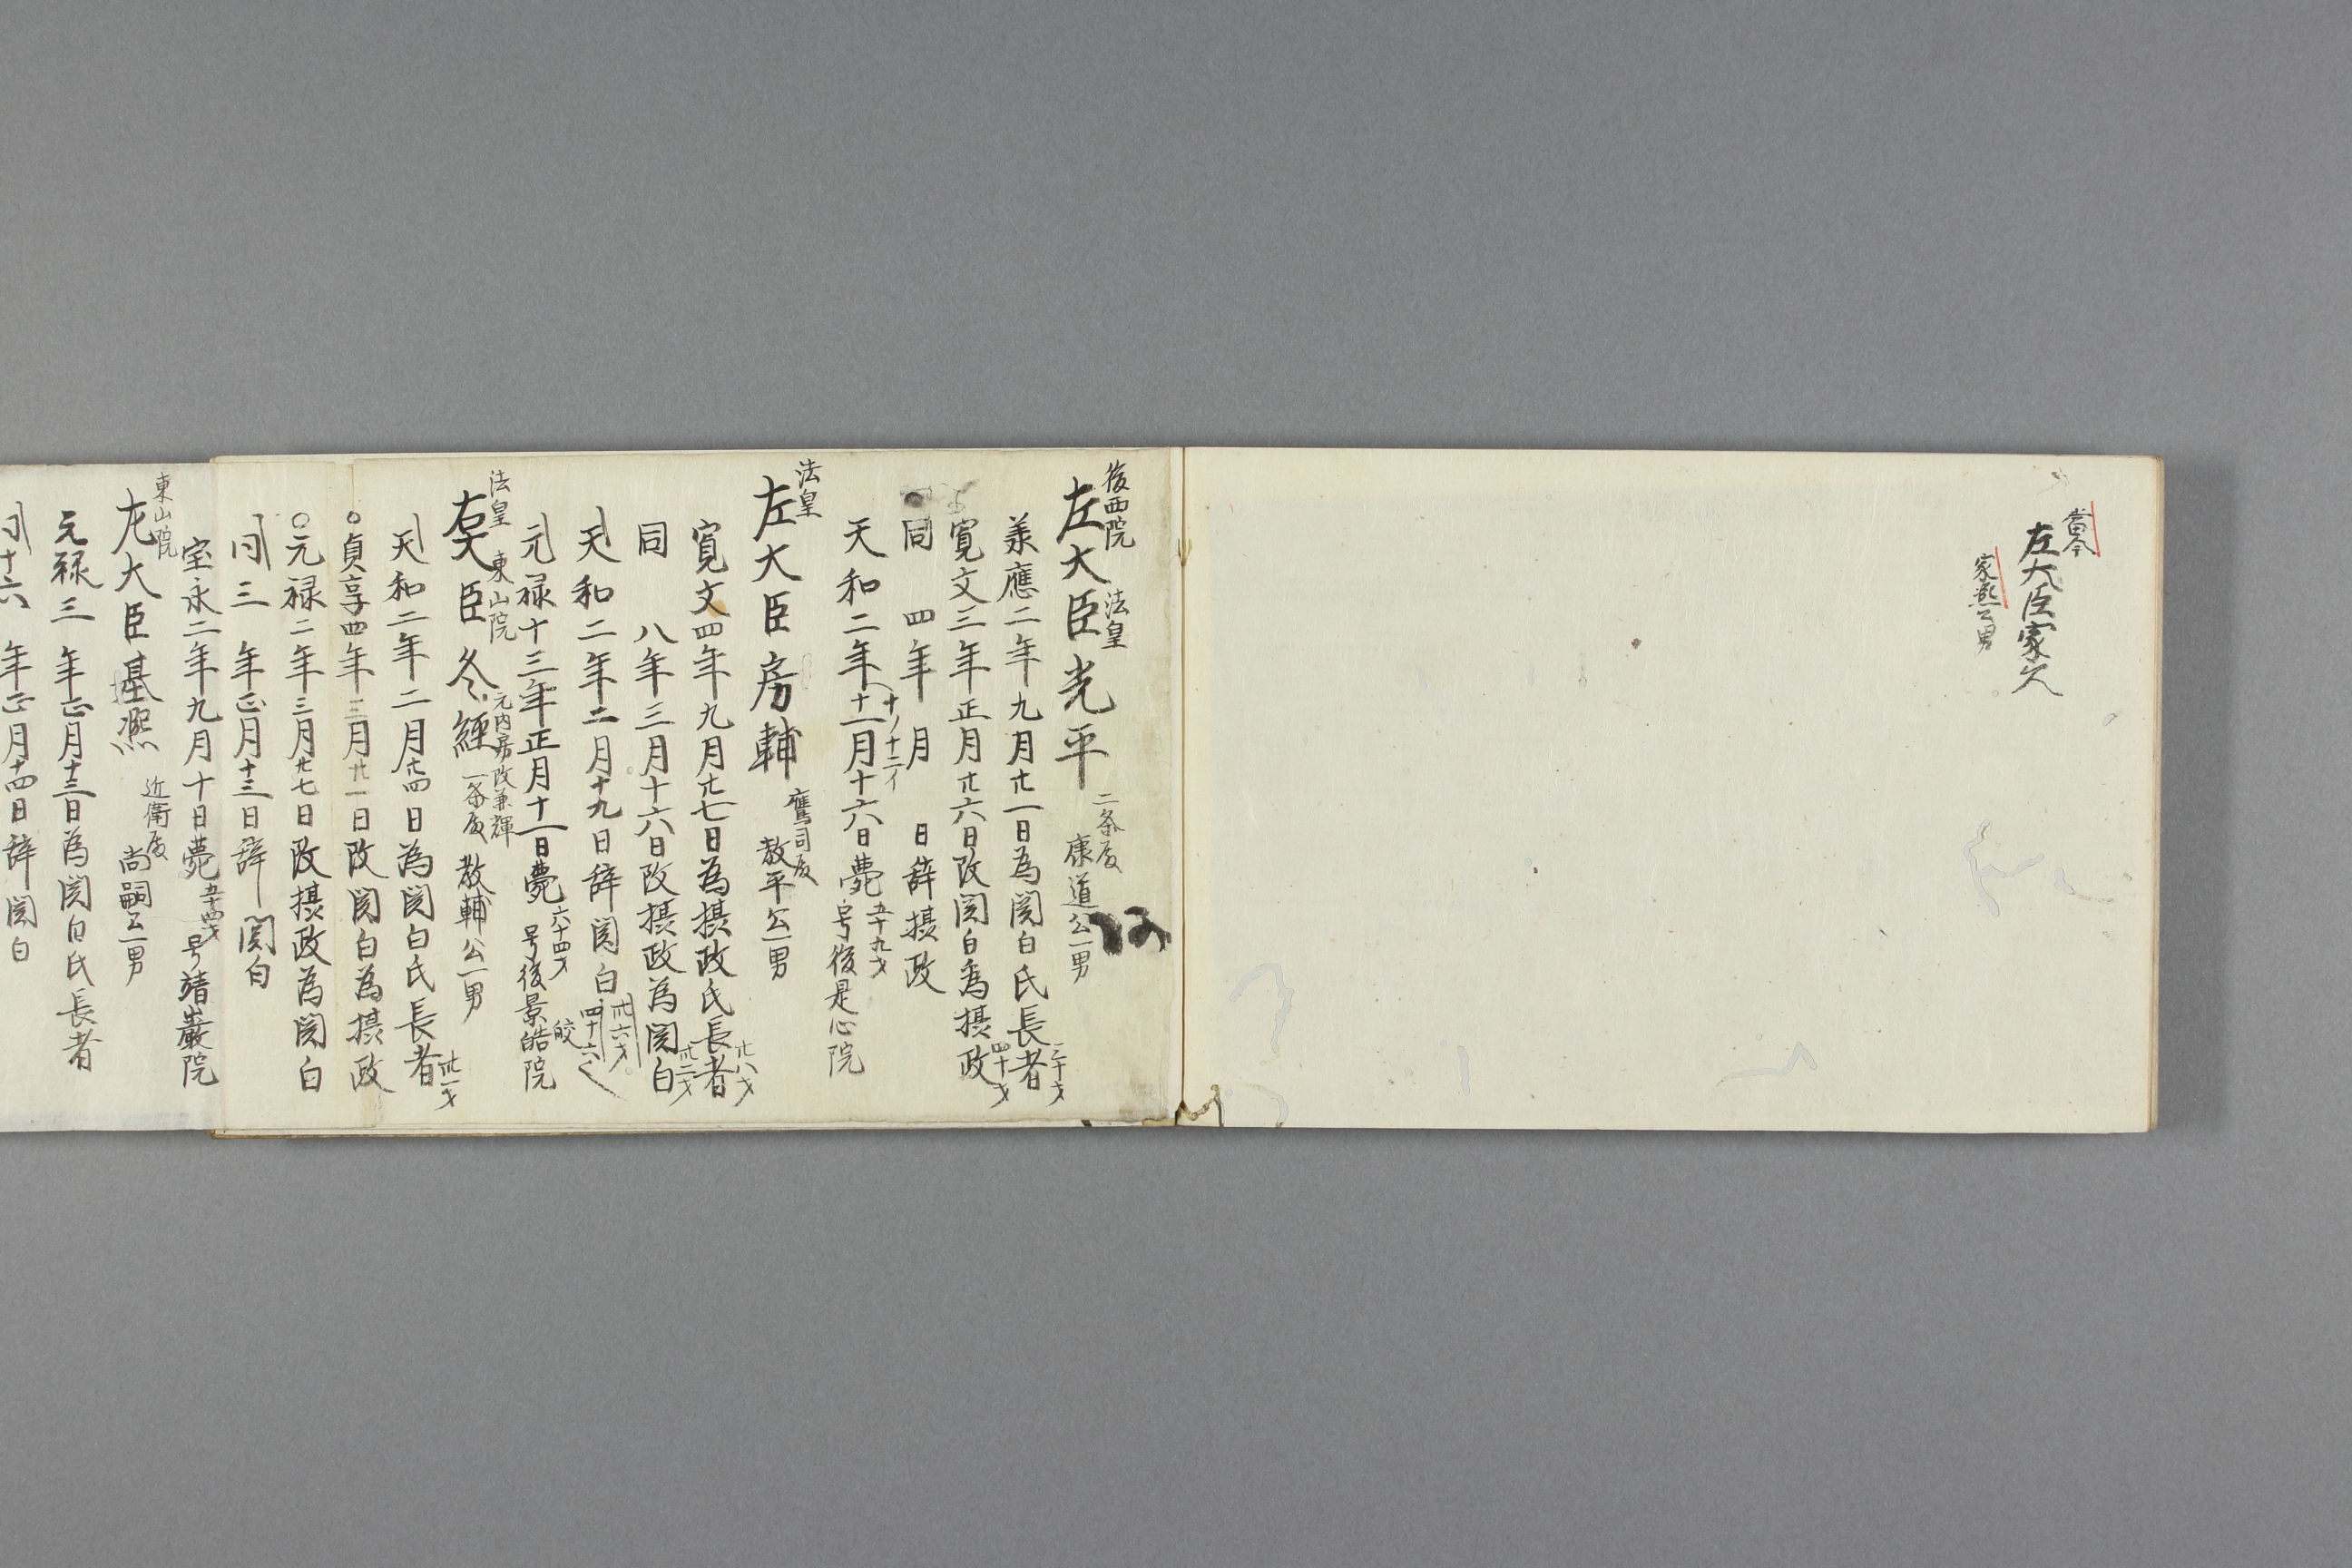 當今
左大臣家久
家熈公男
後西院 法皇
左大臣光平
二条殿
康道公一男
羕應二年九月廿一日為関白氏長者
三十才
寛文三年正月廿六日改関白為摂政
四十才
同 四年 月 日辞摂政
天和二年十一月十六日薨
十ノ十二イ
五十九才
号後是心院
法皇
左大臣房輔
鷹司殿
教平公一男
寛文四年九月廿七日為摂政氏長者
廿八才
同 八年三月十六日改摂政為関白
卅二才
天和二年二月十九日辞関白
卅六才
四十六
元禄十三年正月十一日薨
六十四才
号後景皓院
皎
法皇 東山院
右大臣冬經
元内房改兼輝
一条殿
教輔公一男
天和二年二月廿四日為関白氏長者
卅一才
○貞享四年三月廿一日改関白為摂政
○元禄二年三月廿七日改摂政為関白
同三年正月十三日辞関白
宝永二年九月十日薨
五十四才
号靖巌院
東山院
左大臣基熈
近衛殿
尚嗣公一男
元禄三年正月十三日為関白氏長者
同十六年正月十四日辞関白